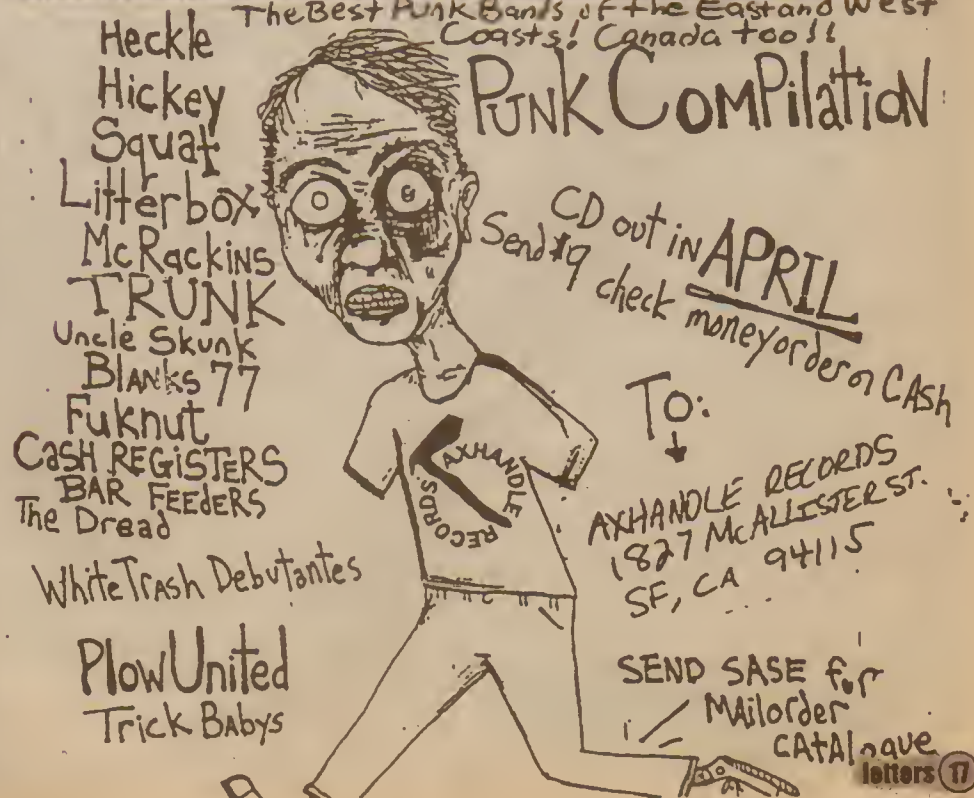 The Best Punk Bands of the East and West
Coasts! Canada too!!
PUNK COMPilatioN
Heckle
Hickey
Squat
Litterbox
McRackins
TRUNK
Uncle Skunk
Blanks 77
Fuknut
CASH REGISTERS
BAR FEEDERS
The Dread
White Trash Debutantes
Plow United
Trick Babys
CD out in APRIL
Send $9 check money order or CAsh
To:
AXHANDLE RECORDS
1827 McALLISTER ST.
SF, CA 94115
AXHANDLE RECORDS
SEND SASE for
MAilorder
CAtAlogue
letters 17